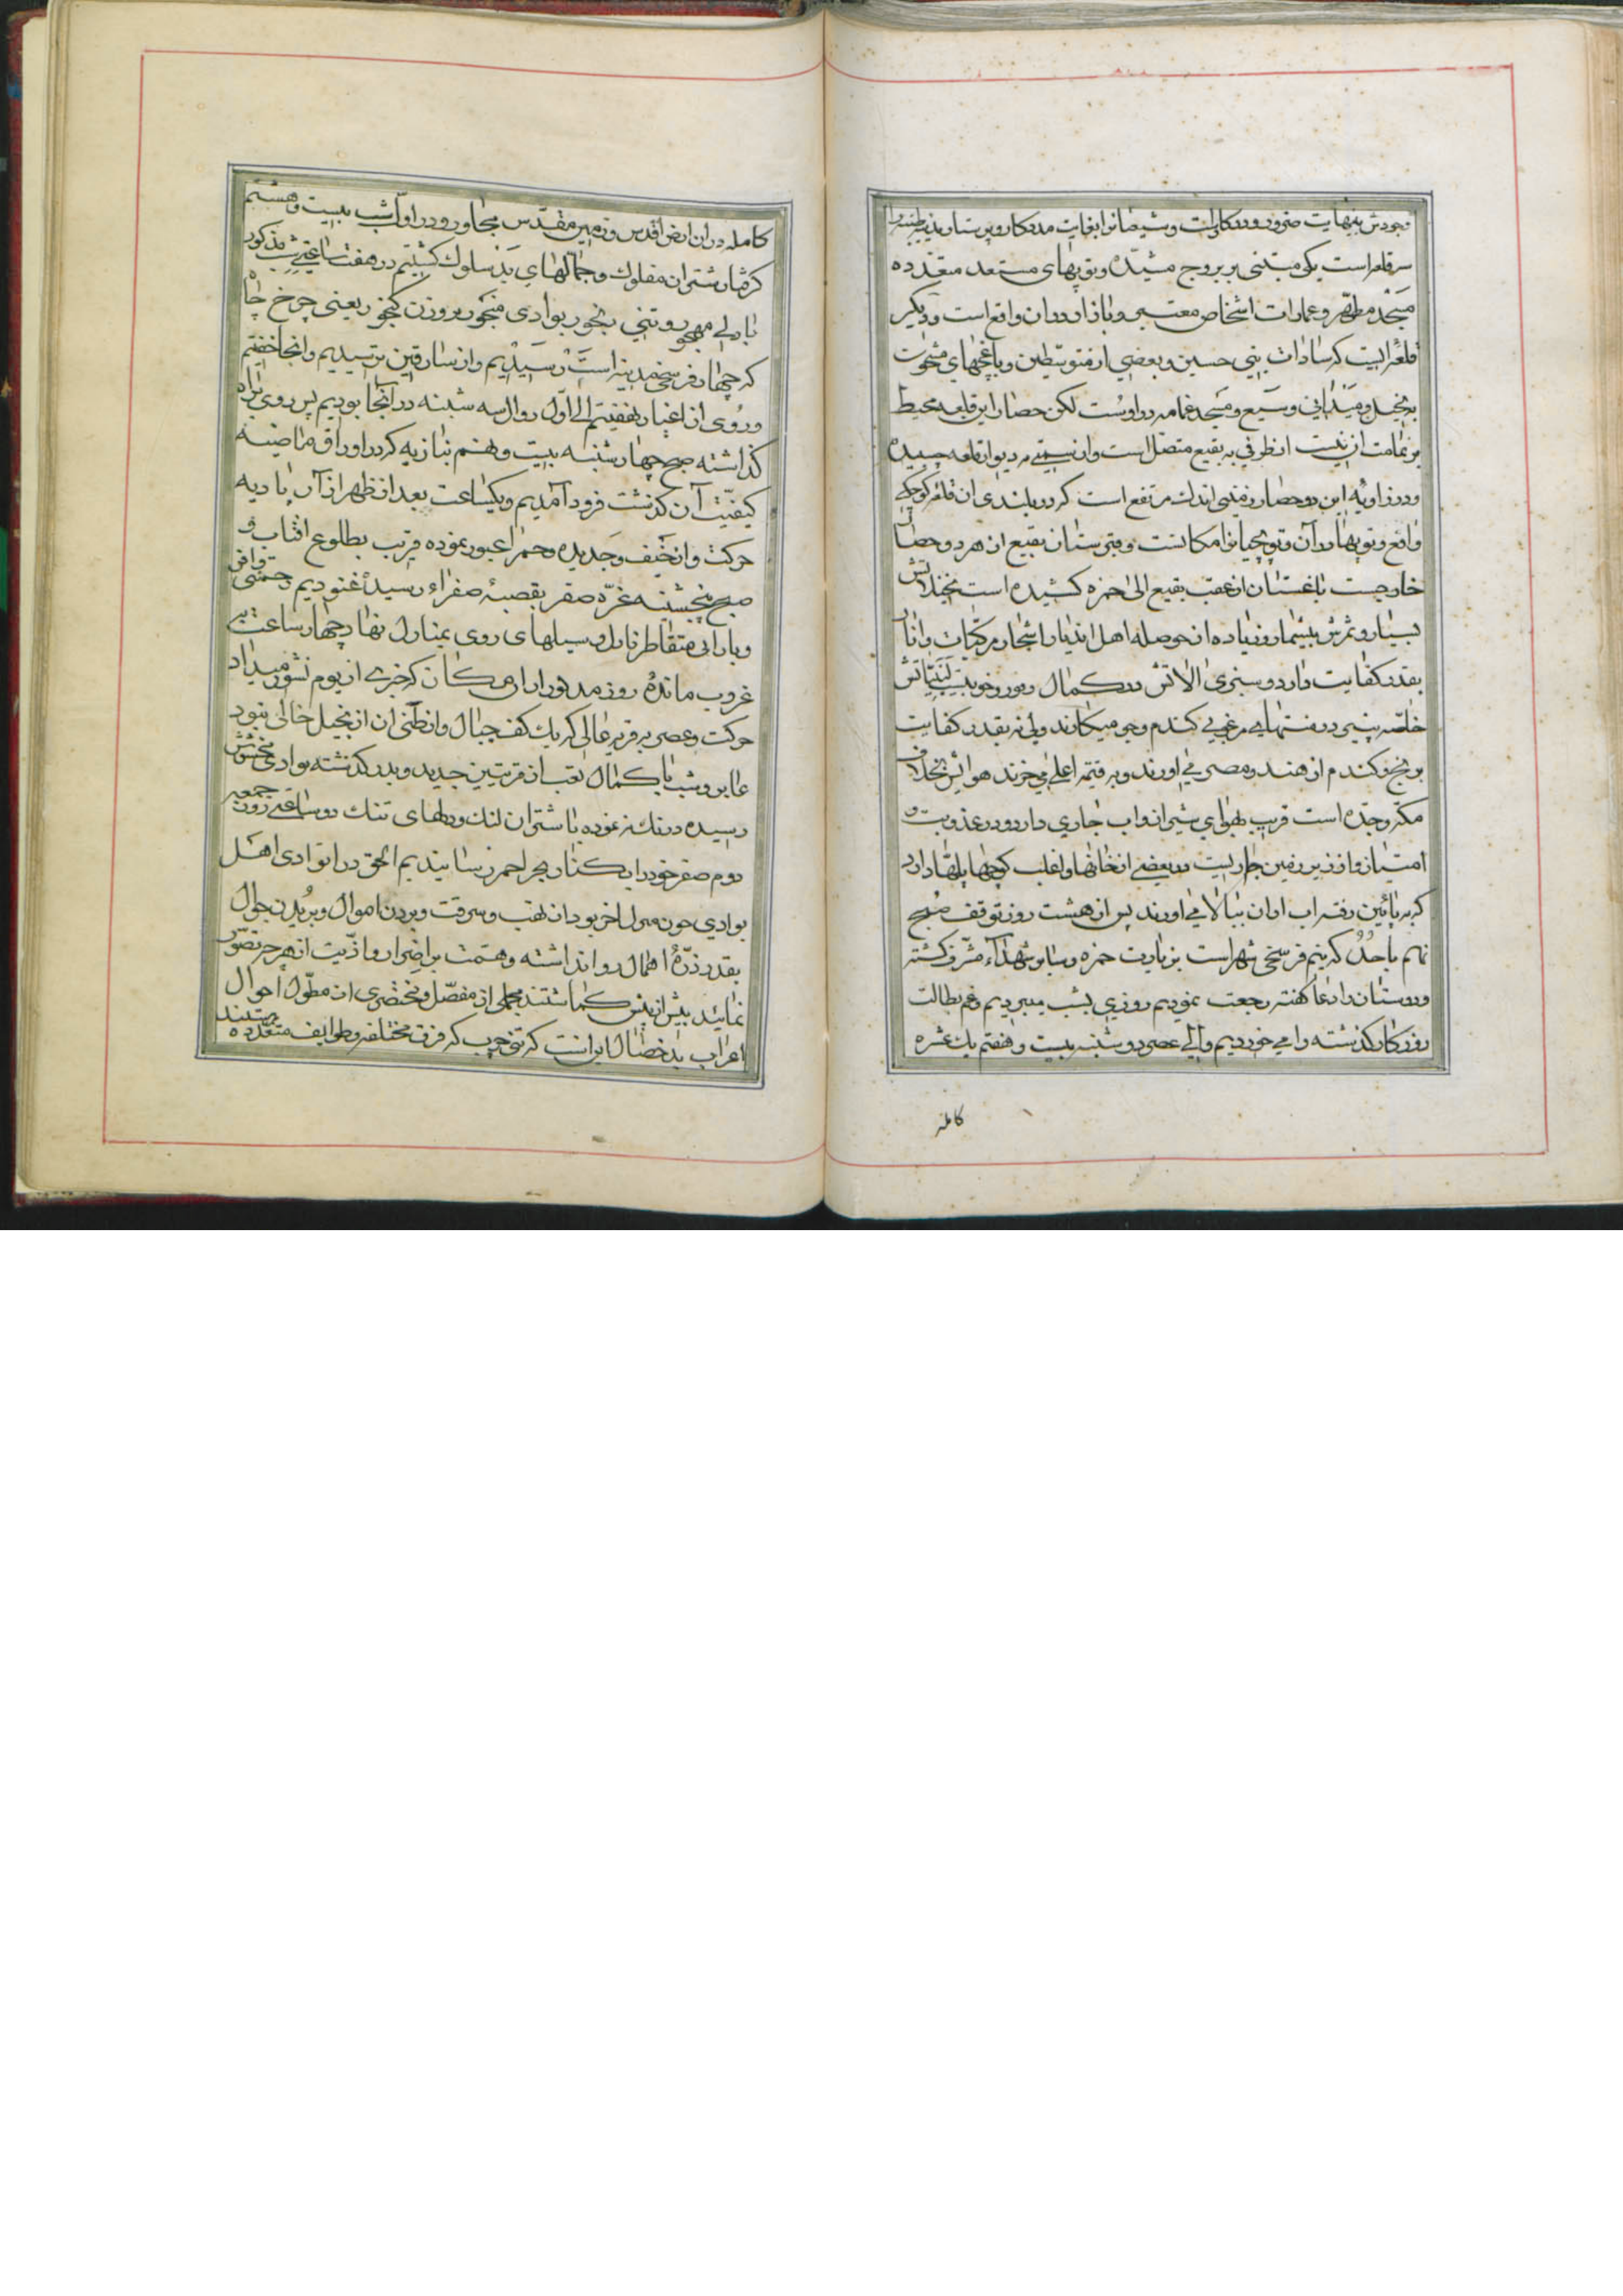 وجودش بینهایت ضرور و درکار است و شیعیانرا بغایت مددکار و پرستار
سر قلعه است یکی مبتنی بر بروج مشیّده و توپهای مستعد متعدّده
مسجد مطهّر و عمارات اشخاص معتبر و بازار در ان واقع است و دیگر
قلعه ایست که سادات بنی حسین و بعضی از متوسّطین و باغچهای مشحون
بنخیل و میدانی وسیع و مسجد غمامه در اوست لکن حصار این قلعه محیط
بر تمامت ان نیست از طرفی به بقیع متصل است و از سمتی بر دیوار قلعه چسبیده
و در زاویه این دو حصار زمینی اندک مرتفع است که در بلندی ان قلعه کوچکی
واقع و توپها در آن و توپچیانرا مکانست و قبرستان بقیع از هر دو حصار
خارجست باغستان از عقب بقیع الی حمزه کشیده است نخیلاتش
بسیار و ثمرش بیشمار و زیاده از حوصله اهل اندیار اشجار مرکّبات و انار
بقدر کفایت دارد و سبزی الاتش در کمال وفور و خوبیست لبنیّاتش
خاصّه پنیر در نهایت مرغوبی گندم و جو میکارند ولی نه بقدر کفایت
برنج و گندم از هند و مصر می اورند و به قیمه اعلی میخرند هوایش بخلاف
مکّه و جدّه است قریب بهوای شیراز و اب جاری دارد و در عذوبت
امتیاز و از زیر زمین جاریست در بعضی از خانها و اغلب کوچها پلها دارد
که به پائین رفته اب از ان ببالا می اورند پس از هشت روز توقف صبح
نهم باحُد که نیم فرسخی شهر است بزیارت حمزه و سایر شهداء مشرّف گشته
و دوستان را دعا گفته رجعت نمودیم روزی بشب میبردیم و غم بطالت
روزگار گذشته را می خوردیم والی عصر دوشنبه بیست و هفتم یک عشره
کامله
کامله در ان ارض اقدس و زمین مقدّس مجاور و در اوّل شب بیست و هشتم
گرفتار شتران مفلوک و جمّالهای بد سلوک گشتیم در هفت ساعتی شب مذکور
با دلی مهجور و تنی رنجور بوادی منجور بروزن گنجور یعنی چرخ چاه
که چهار فرسخی مدینه است رسیدیم و از سارقین ترسیدیم و انجا خفتیم
و روی از اغیار نهفتیم الی اوّل زوال سه شنبه در آنجا بودیم پس روی براه
گذاشته صبح چهارشنبه بیست و نهم بنازیه که در اوراق ماضیه
کیفیّت آن گذشت فرود آمدیم و یکساعت بعد از ظهر از آن بادیه
حرکت و از خَیف و جدیده و حمرا عبور نموده قریب بطلوع افتاب
صبح پنجشنبه غرّه صفر بقصبهٔ صفراء رسیده غنودیم
و بارانی متقاطر نازل و سیلهای روی بمنازل نهاد چهار ساعت به
غروب مانده روز مذکور از ان مکان که خبری از یوم نشور میداد
حرکت و عصر به قریه عالی که یک کف جبال و از طرفی ان از نخیل خالی نبود
عابر و شب با کمال تعب از قریتین جدید و بدر گذشته بوادی
رسیده درنگ نموده با شتران لنگ و دلهای تنگ دو ساعتی روز جمعه
دوم صفر خود را بکنار بحر احمر رسانیدیم الحق در انوادی اهل
بوادی چون منزل اخر بود از نهب و سرقت و بردن اموال و بریدن جوال
بقدر ذرّهٔ اهمال روا نداشته و همّت بر اضرار و اذّیت از هر چه تصوّر
نمایند بیش از پیش گماشتند مجملی از مفصّل و مختصری از مطوّل احوال
اعراب بد خصال اینست که فرق مختلفه و طوایف متعدّده هستند